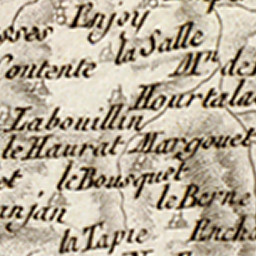 Enjoy
la Salle
Contente
Mn de
Hourtala
Labouillin
le Haurat
Margouet
le Bousquet
le Berne
la Tapie